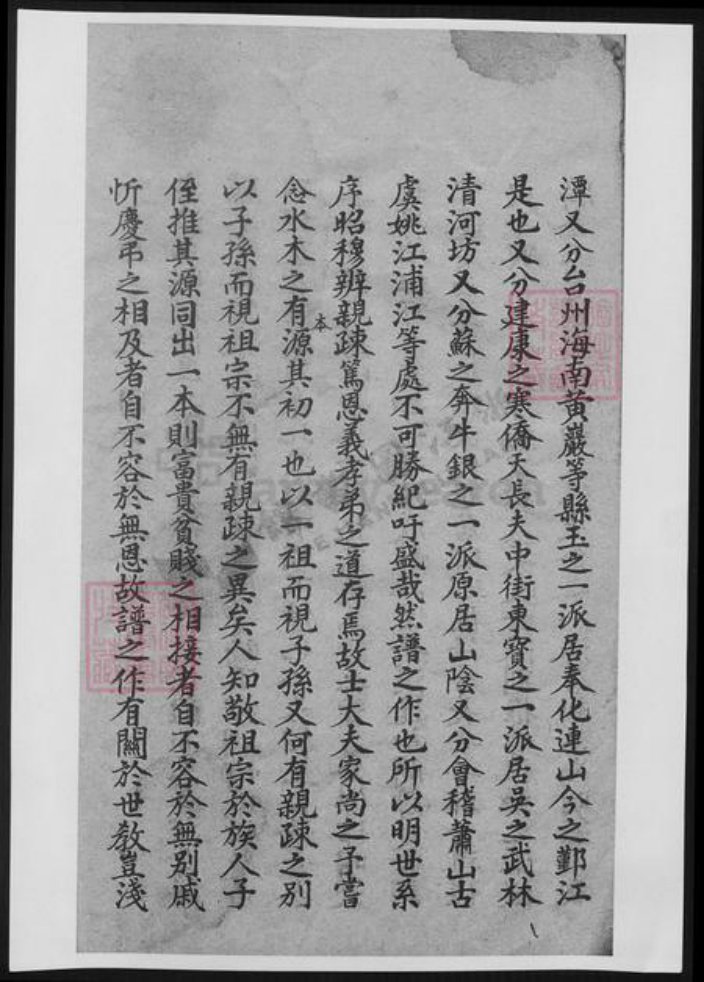 潭又分台州海南黃巖等縣玉之一派居奉化連山今之鄞江
是也又分建康之寒僑天長夫中街東寶之一派居吳之武林
清河坊又分蘇之奔牛銀之一派原居山陰又分會稽蕭山古
虞姚江浦江等處不可勝紀吁盛哉然譜之作也所以明世系
序昭穆辨親疎篤恩義孝弟之道存焉故士大夫家尚之予嘗
念水木之有本源其初一也以一祖而視子孫又何有親疎之別
以子孫而視祖宗不無有親疎之異矣人知敬祖宗於族人子
侄推其源同出一本則富貴貧賤之相接者自不容於無別戚
忻慶弔之相及者自不容於無恩故譜之作有關於世教豈淺